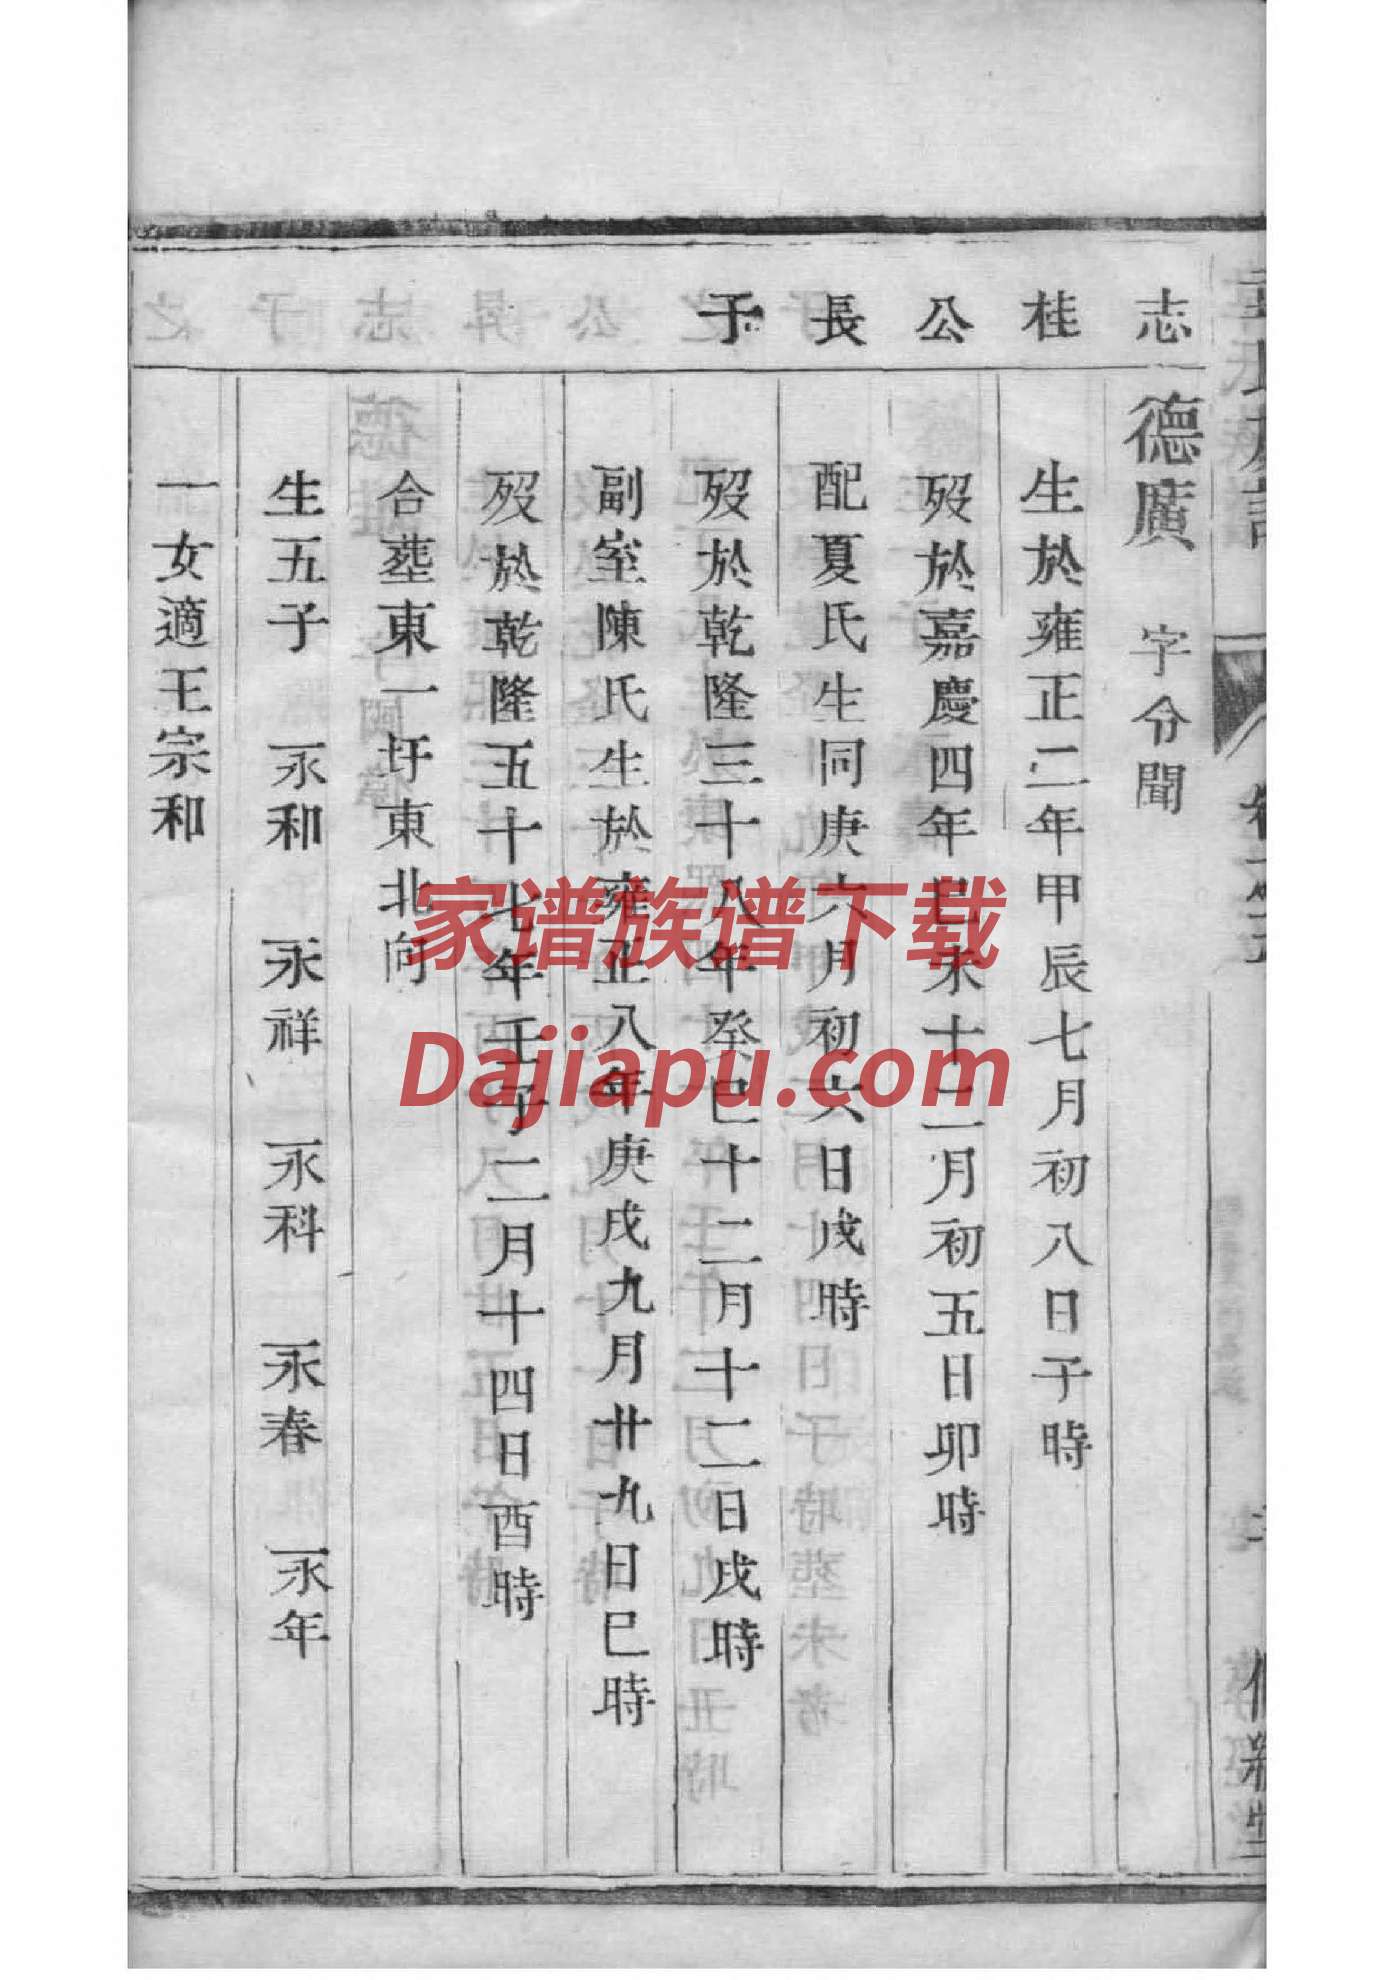 志 德廣 字分聞
桂 生於雍正二年甲辰七月初八日子時
公 歿於嘉慶四年己未十二月初五日卯時
長 配夏氏生同庚六月初六日戌時
子 歿於乾隆三十八年癸巳十二月十二日戌時
副室陳氏生於雍正八年庚戌九月廿九日巳時
歿於乾隆五十七年壬子二月十四日酉時
合塟東一圩東北向
生五子 永和 永祥 永科 永春 永年
一女適王宗和
家谱族谱下载
Dajiapu.com